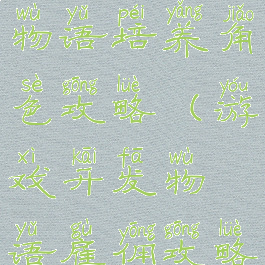 wù yǔ péi yǎng jiǎo
物语培养角
sè gōng lüè yóu
色攻略(游
xì kāi fā wù
戏开发物
yǔ gù yōng gōng lüè
语雇佣攻略